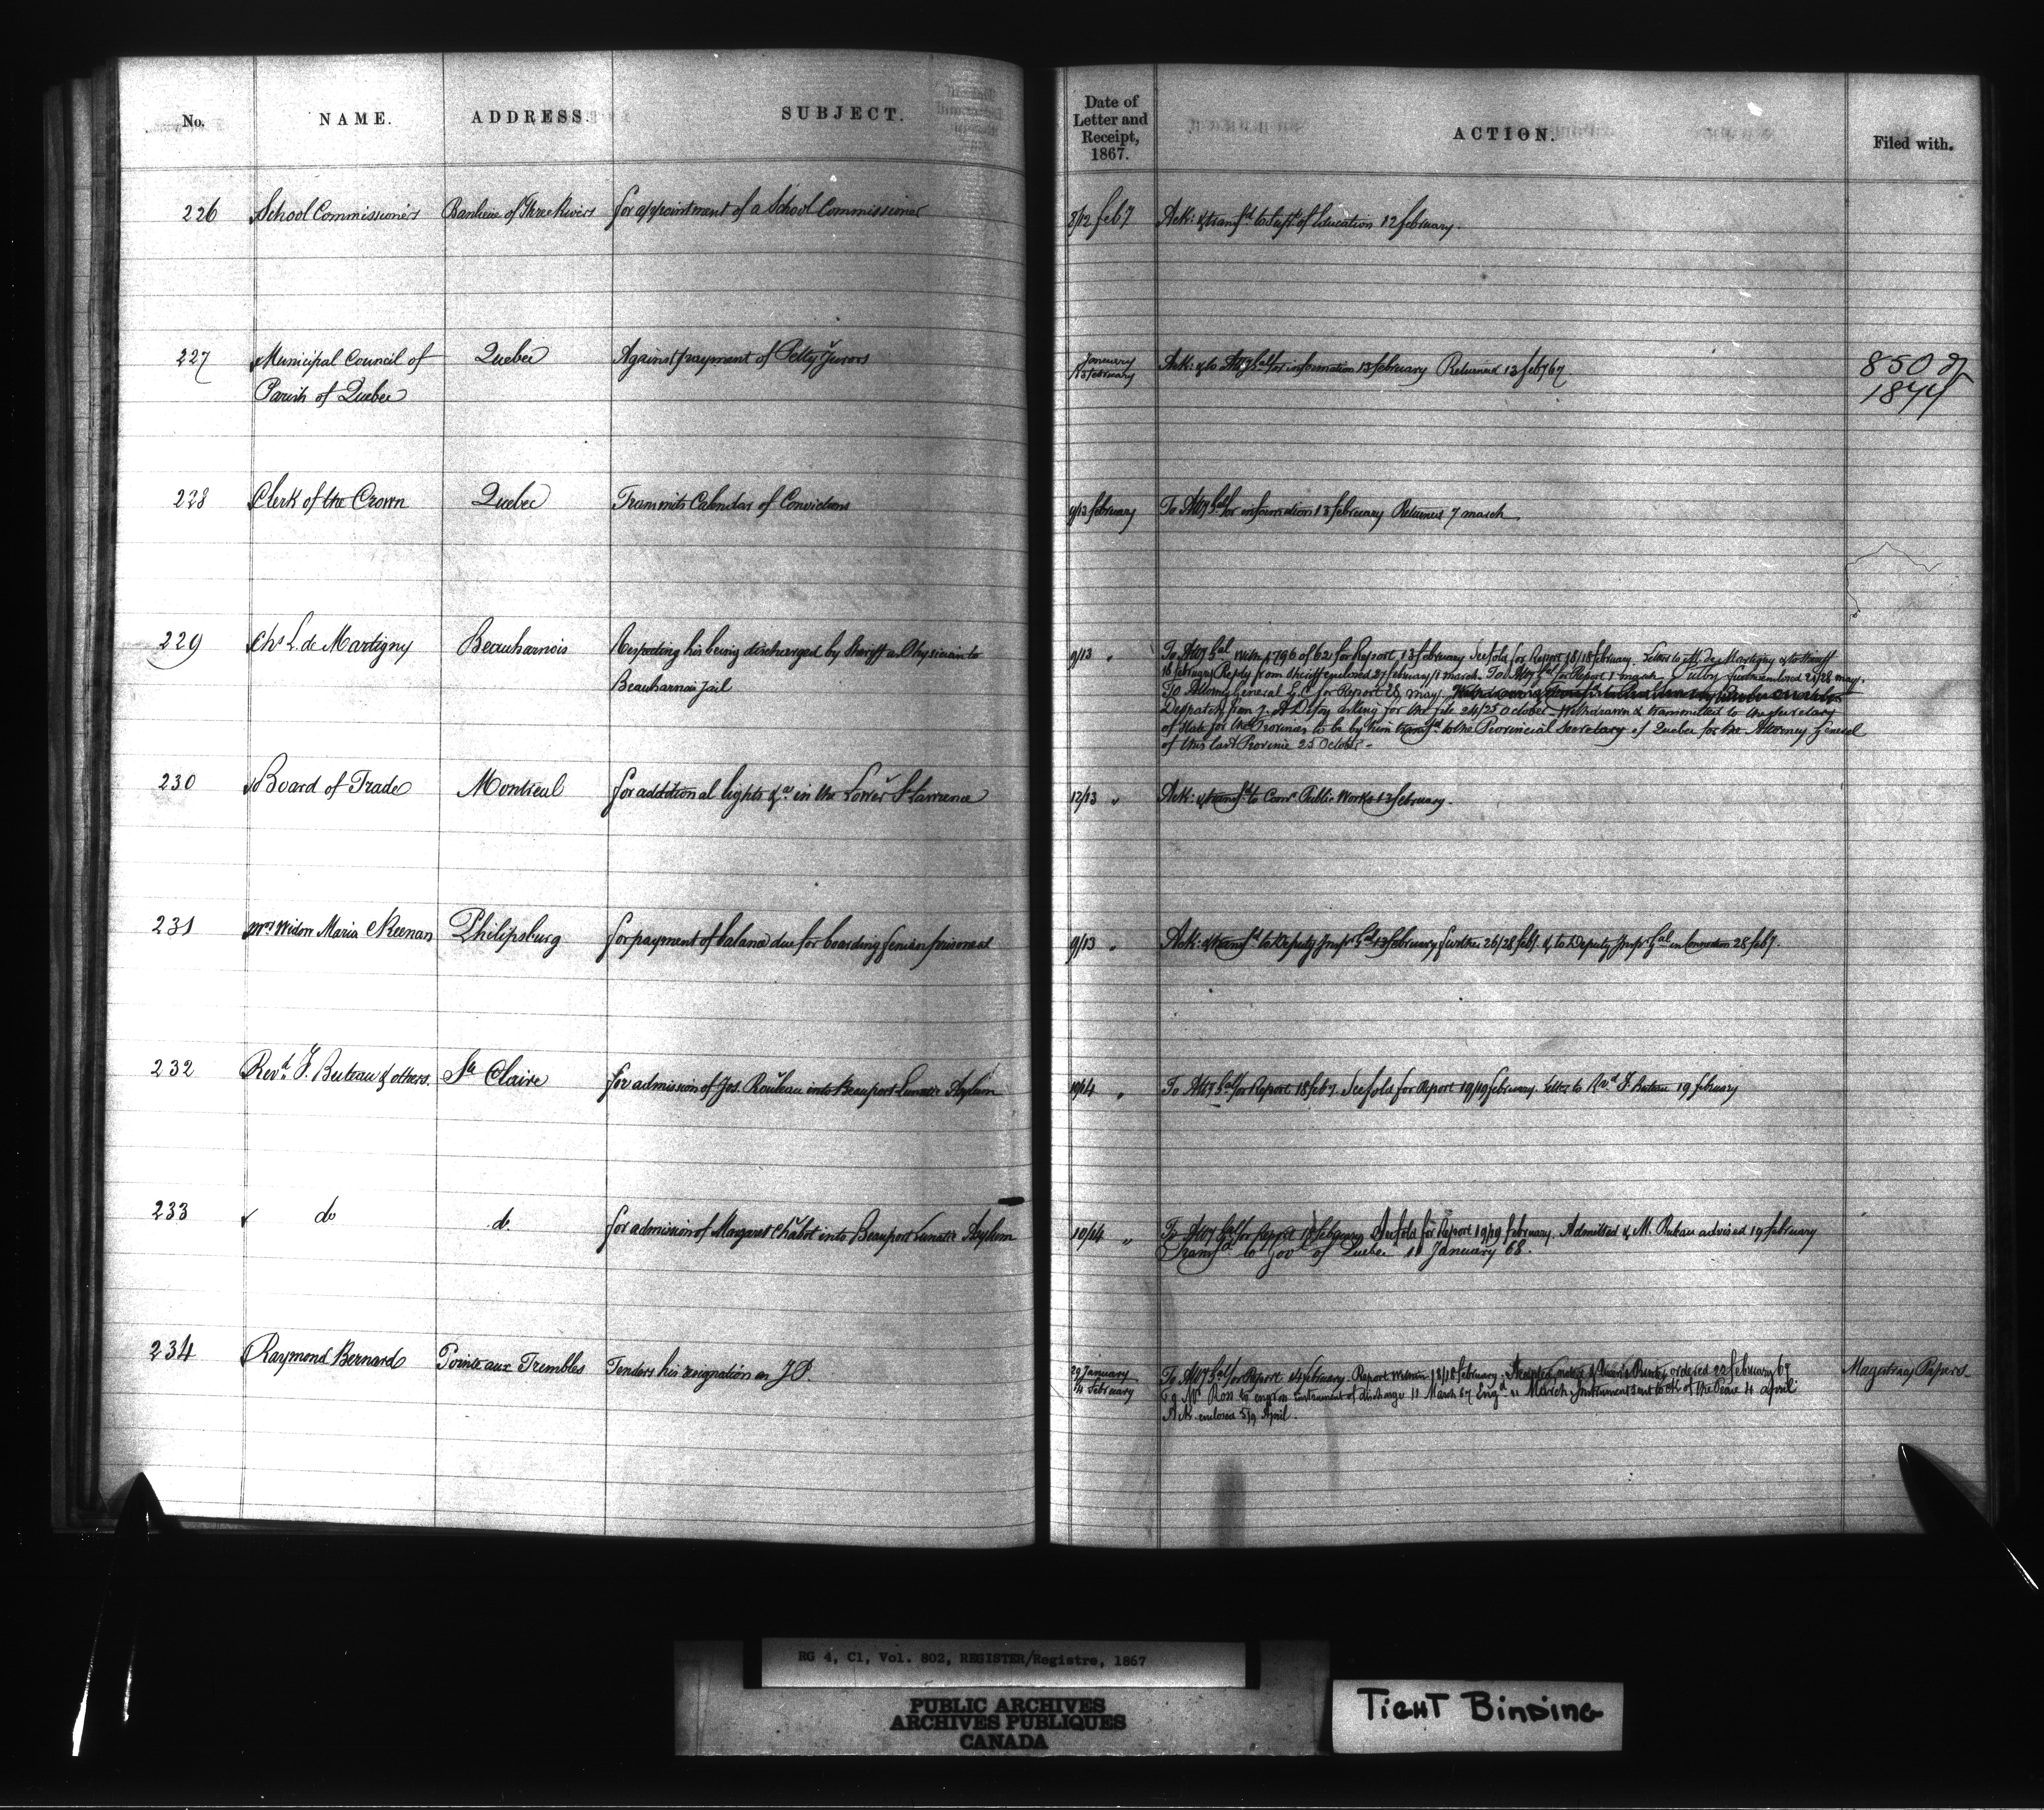 No. NAME. ADDRESS. SUBJECT. Date of Letter and Receipt, 1867. ACTION. Filed with.
226 School Commissioners Banlieue of Three Rivers for appointment of a School Commissioner 8/12 feby Ack: & transfd to Supt of Education 12 february.
227 Municipal Council of Quebec Against payment of Petty Jurors January Ack: & to Atty Gal for information 13 february Returned 13 feby 67 850 of
Parish of Quebec 13 february 1844
228 Clerk of the Crown Quebec Transmits Calendar of Convictions 9/13 february To Atty Gal for information 13 february Returned 7 march
229 Chs L. de Martigny Beauharnois Respecting his being discharged by Sheriff as Physician to 9/13 " To Atty Gal with 1796 of 62 for Report 13 february See fold for Report 18/18 february. Letter to M. de Martigny & to Sheriff
Beauharnois Jail 18 february Reply from Sheriff enclosed 27 february/1 march. To Atty Gal for Report 1 march further enclosed 21/28 may.
To Attorney General L.C. for Report 28 may
Despatch from J. A. Defoy asking for the file 24/25 October Withdrawn & transmitted to the Secretary
of State for the Provinces to be by him transfd to the Provincial Secretary of Quebec for the Attorney General
of this last Province 25 October -
230 Board of Trade Montreal for additional lights &ca in the Lower St Lawrence 12/13 " Ack: & transfd to Comr Public Works 13 february.
231 Mrs Widow Maria Keenan Philipsburg for payment of balance due for boarding fenian prisoners 9/13 " Ack: & transfd to Deputy Inspr Gal 13 february further 26/28 feby. & to Deputy Inspr Gal in Connection 28 feby.
232 Revd F. Buteau & others. Ste Claire for admission of Jos. Rouleau into Beauport Lunatic Asylum 10/14 " To Atty Gal for Report 18 feby. See fold for Report 19/19 february. Letter to Rvd F. Buteau 19 february
233 do do for admission of Margaret Chabot into Beauport Lunatic Asylum 10/14 " To Atty Gal for Report 18 february See fold for Report 19/19 february. Admitted & M. Buteau advised 19 february
Transfd to Govt of Quebec 11 January 68.
234 Raymond Bernard Pointe aux Trembles Tenders his resignation as J.P. 29 January To Atty Gal for Report 14 february. Report within 18/18 february. Accepted, notice ordered 22 february 67 Magistracy Papers
14 february Mr Ross to engross instrument of discharge 11 March 67 Engd 11 March, Instrument sent to Ck of the Peace 4 april
Ack enclosed 5/9 April.
RG 4, C1, Vol. 802, REGISTER/Registre, 1867
PUBLIC ARCHIVES
ARCHIVES PUBLIQUES
CANADA
TIGHT BINDING